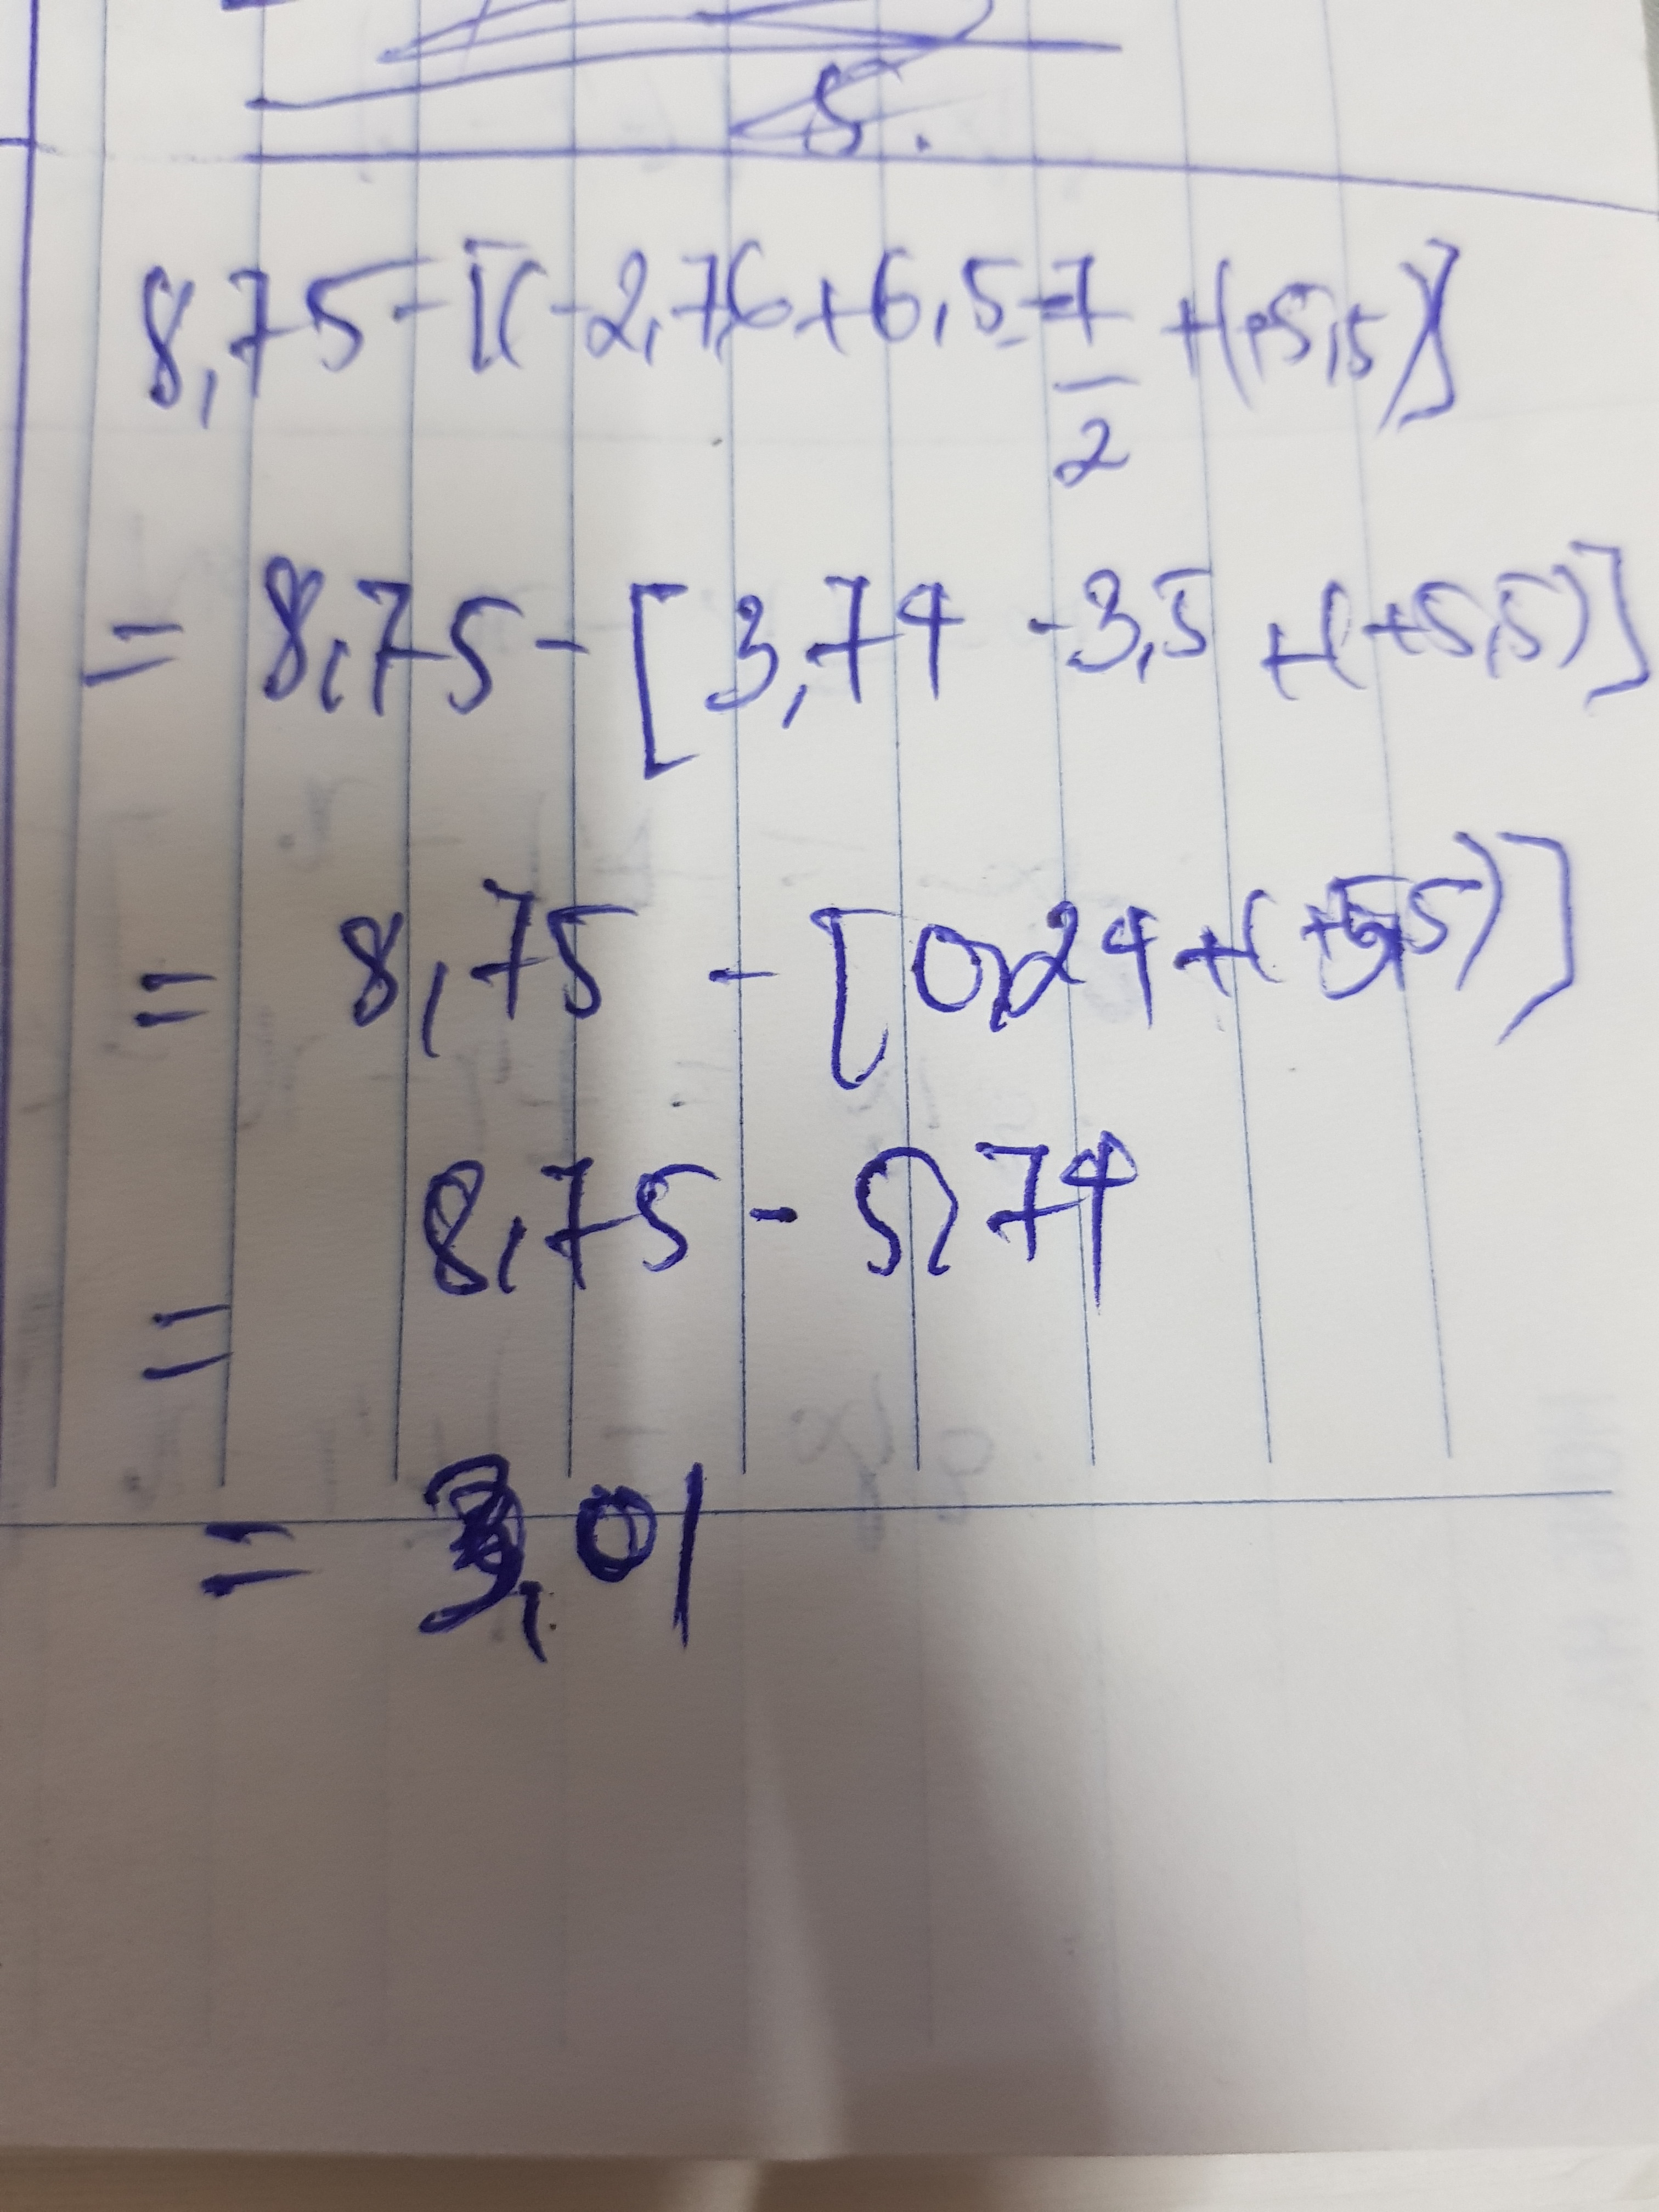 5.
8,75-[(-2,76+6,5-7/2+(+5,5)]
= 8,75-[3,74-3,5+(+5,5)]
= 8,75-[0,24+(+5,5)]
= 8,75-5,74
= 3,01